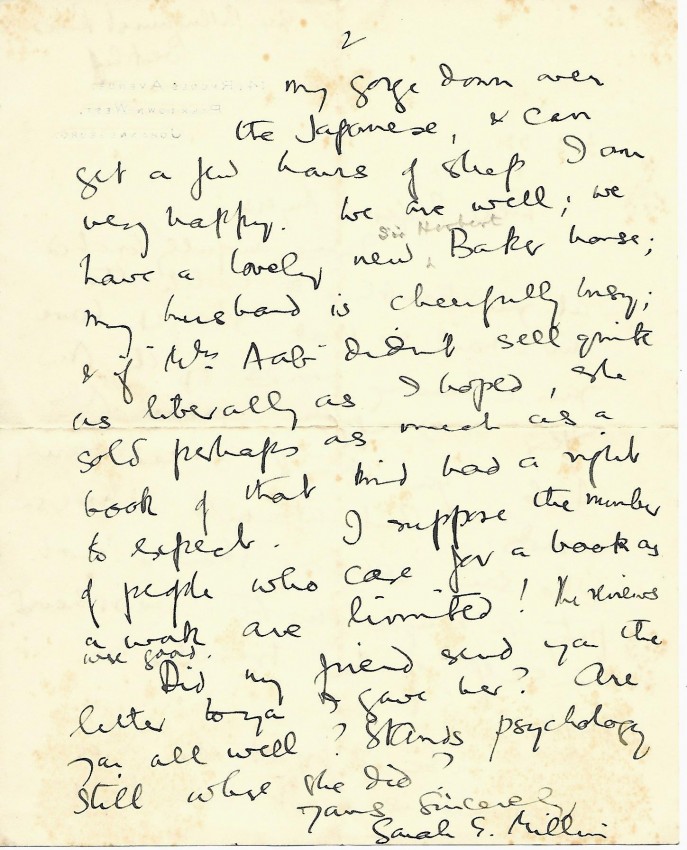 2
my gorge down over
the Japanese, & can
get a few hours of sleep I am
very happy. We are well; we
Sir Herbert
have a lovely new Baker house;
my husband is cheerfully busy;
& if "Mrs Aab" didn't sell quite
as literally as I hoped, she
sold perhaps as much as a
book of that kind had a right
to expect. I suppose the number
of people who care for a book as
a work are limited! The reviews
were good.
Did my friend send you the
letter to you I gave her? Are
you all well? Stands psychology
still where she did?
Yours sincerely
Sarah G. Millin